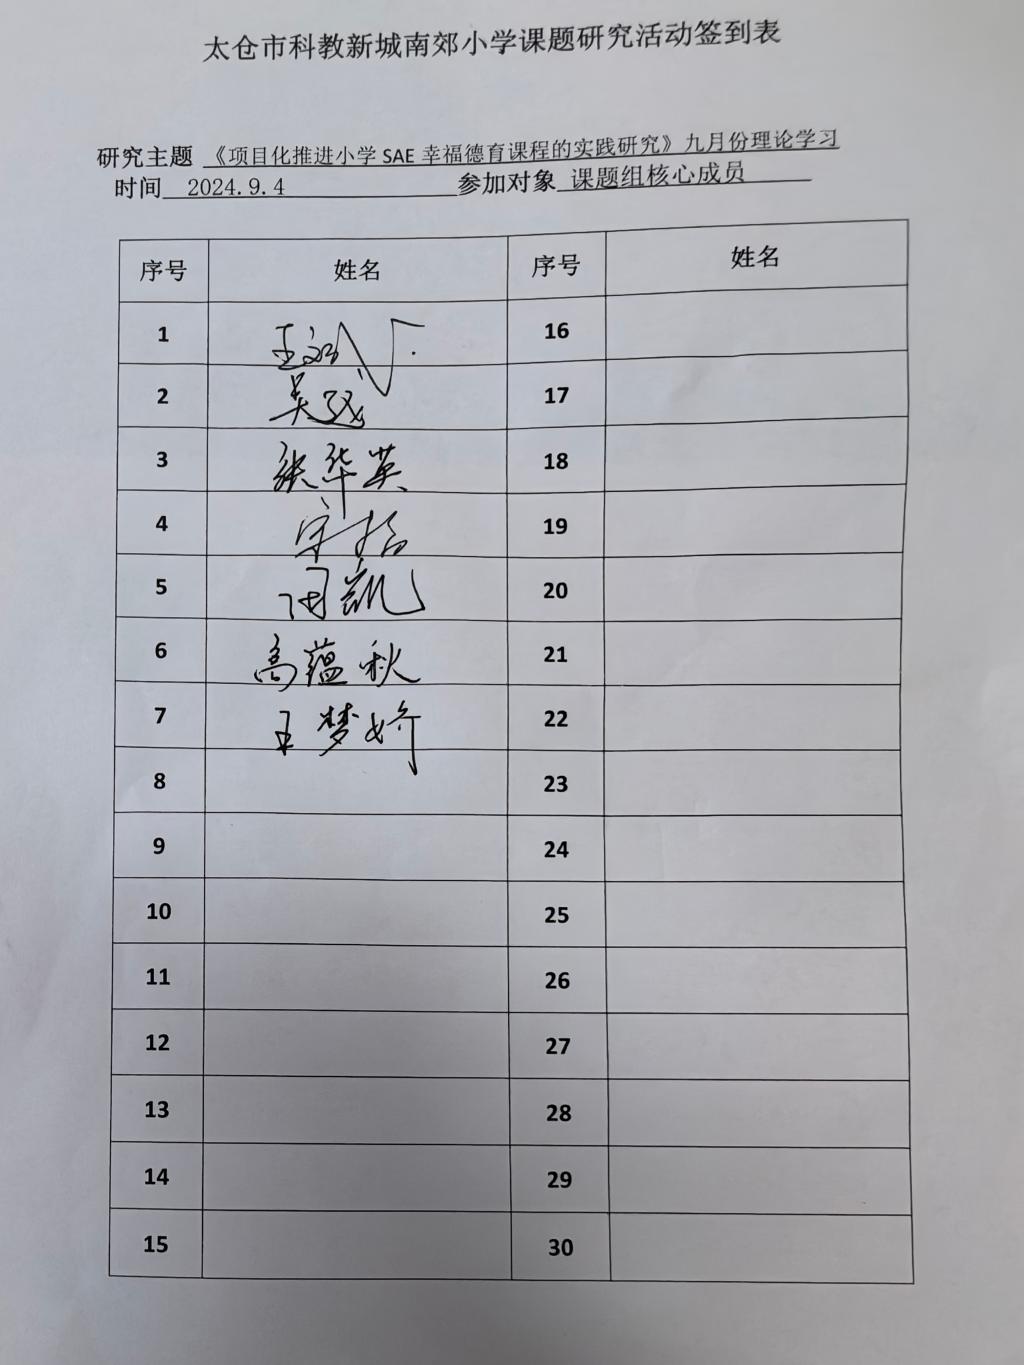 太仓市科教新城南郊小学课题研究活动签到表
研究主题 《项目化推进小学 SAE 幸福德育课程的实践研究》九月份理论学习
时间 2024.9.4 参加对象 课题组核心成员
序号 姓名 序号 姓名
1 16
2 吴 17
3 张华英 18
4 19
5 周凯 20
6 高蕴秋 21
7 王梦娇 22
8 23
9 24
10 25
11 26
12 27
13 28
14 29
15 30